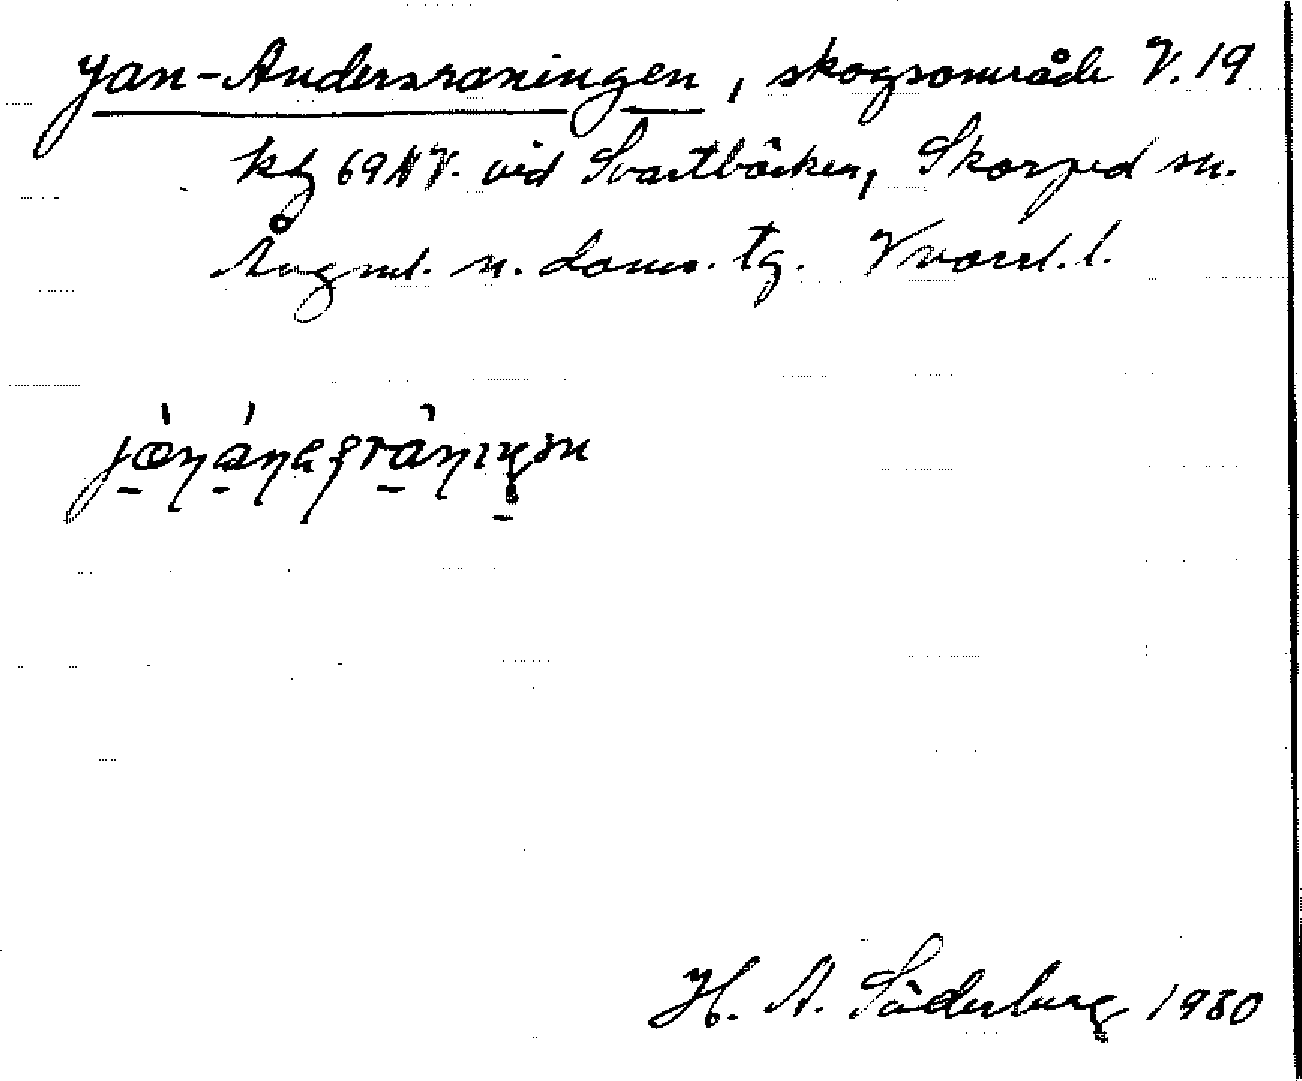 Jan-Andersraningen, skogsområde V. 19
kbl 69 NV. vid Svartbäcken, Skorped sn.
Ångml. n. doms. tg. Vnorrl. l.
H. A. Söderberg 1980